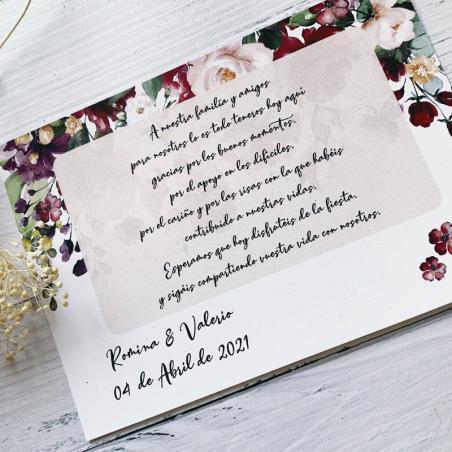 A nuestra familia y amigos
para nosotros lo es todo teneros hoy aquí
gracias por los buenos momentos,
por el apoyo en los difíciles,
por el cariño y por las risas con la que habéis
contribuido a nuestras vidas.
Esperamos que hoy disfrutéis de la fiesta,
y sigáis compartiendo vuestra vida con nosotros.
Romina & Valerio
04 de Abril de 2021